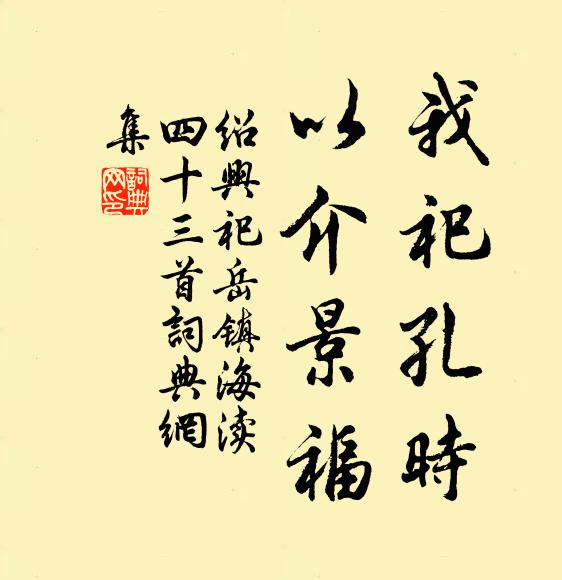 我祀孔時
以介景福
绍興祀岳镇海渎
四十三首詞典網
集
詞典
网印